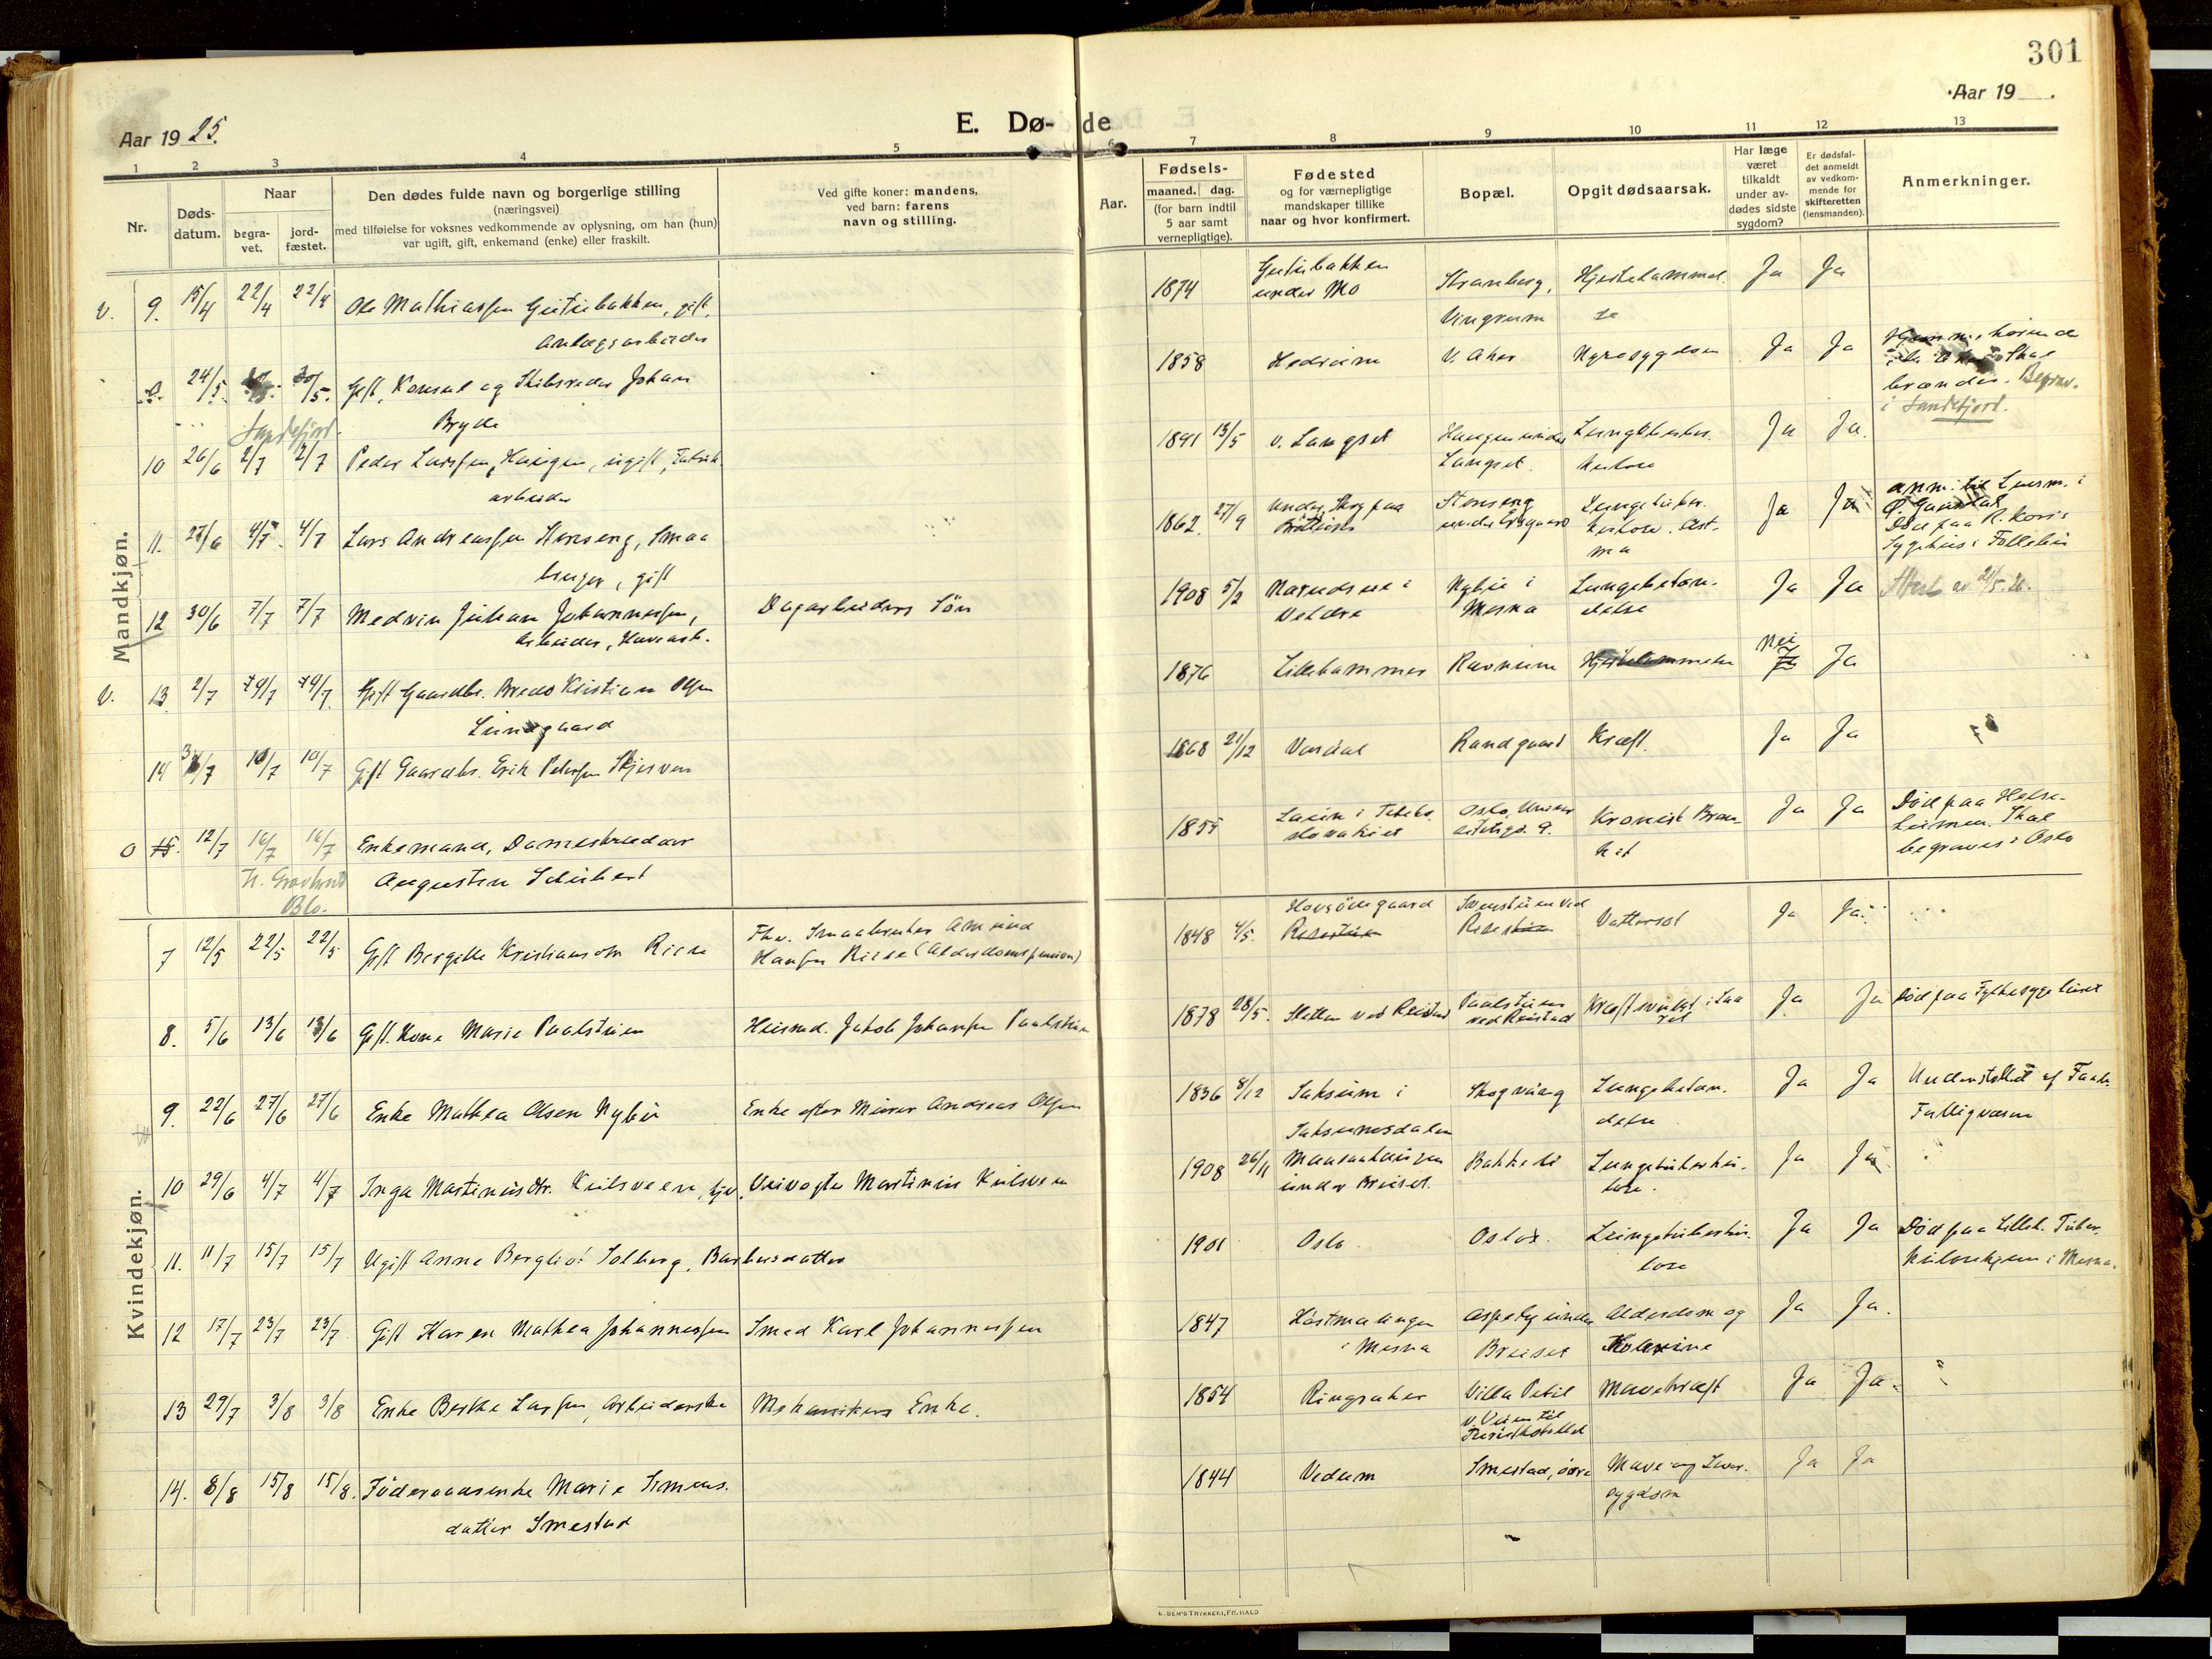 301
Aar 1925.
E. Dø- de
Aar 19 .
1 2 3 4 5 6 7 8 9 10 11 12 13
Nr.
Døds-
datum.
Naar
begra-
vet.
jord-
fæstet.
Den dødes fulde navn og borgerlige stilling
(næringsvei)
med tilføielse for voksnes vedkommende av oplysning, om han (hun)
var ugift, gift, enkemand (enke) eller fraskilt.
Ved gifte koner: mandens,
ved barn: farens
navn og stilling.
Aar.
Fødsels-
maaned. dag.
(for barn indtil
5 aar samt
vernepligtige).
Fødested
og for værnepligtige
mandskaper tillike
naar og hvor konfirmert.
Bopæl.
Opgit dødsaarsak.
Har læge
været
tilkaldt
under av-
dødes sidste
sygdom?
Er dødsfal-
det anmeldt
av vedkom-
mende for
skifteretten
(lensmanden).
Anmerkninger.
Mandkjøn.
V. 9. 15/4 22/4 22/4 Ole Mathiassen Gutubakken, gift, 1874 Gutubakken Stranberg, Hjertelammel. Ja Ja
Anlægsarbeider under Mo Vingrum se
24/5 30/5. Gift, Konsul og Skibsreder Johan 1858 V. Aker Nyresygdom Ja Ja
Bryde brændes. Begrav.
Sandefjord. i Sandefjord.
10 26/6 2/7 2/7 Peder Larssen, Haugen, ugift, Fabrik 1891 13/5 v. Langset Haugen under Ja Ja.
arbeider Langset.
11. 27/6 4/7 4/7 Lars Andreassen, Smaa 1862 27/9 under Skog paa Stenseng Lungetuber. Ja Ja anm. til Lensm. i
bruger, gift kulose. Ast- Ø. Gausdal
ma Død paa R. Kors's
Sygehus i Follebu
12 30/6 7/7 7/7 Medvin Julian Johannessen, Dagarbeiders Søn 1908 5/2 i Nybu i Lungebetæn- Ja Ja Attest av 21/5.
Arbeider, Havearb. Veldre Mesna delse
V. 13. 2/7 9/7 9/7. Gift Gaardbr. Kristian Olsen 1876 Lillehammer Ravnum Hjertelammelse Nei Ja Ja
Lunagaard
14 3/7 10/7 10/7 Gift Gaardbr. Erik Petersen Skjerven 1868 21/12 Vardal Randgaard Kræft. Ja Ja
O 15. 12/7 16/7 16/7 Enkemand, Dameskrædder 1855 i Tsheko- Oslo, Univer Kronisk Bron Ja Ja Død paa Helse-
Augustin Schubert slovakiet sitetsgd. 9. kit heimen. Skal
begraves i Oslo
Kvindekjøn.
7 12/5 22/5 22/5 Gift Bergitte Kristiansdtr Riise Fhv. Smaabruker Amund 1848 4/5. Vattersot Ja Ja
Hansen Riise (Alderdomspension)
8. 5/6 13/6 13/6 Gift. Kone Marie Paalstuen Husmd. Jakob Johansen Paalstuen 1878 28/5. Sletten ved Reistad Paalstuen Ja Ja Død paa Fylkessygehuset
ved Reistad
9. 22/6 27/6 27/6 Enke Mathea Olsen Nybu Enke efter Murer Andreas Olsen 1836 8/12 Saksum i Skogvang Lungebetæn. Ja Ja Understøttet af Faab.
Saksumsdalen delse Fattigvæsen
10 29/6 4/7 4/7 Inga Martinusdtr. Kulsveen, Veivogter Martinus Kulsveen 1908 26/11 Bakkeli Lungetuberku- Ja Ja
under Breiset. lose.
11. 11/7 15/7 15/7 Ugift Anne Bergliot Solberg, Barbersdatter 1901 Oslo Oslo. Lungetuberku- Ja Ja Død paa Lilleh. Tuber
lose kulosehjem i Mesna.
12 17/7 23/7 23/7 Gift Karen Mathea Johannessen Smed Karl Johannessen 1847 Aspelg under Alderdom og Ja Ja.
i Mesna Breiset Kolerine
13 29/7 3/8 3/8 Enke Berthe Larsen, Arbeiderske Mekanikers Enke. 1854 Ringsaker Villa Petit Mavekræft Ja Ja
v. Veien til
Turisthotellet
14. 8/8 15/8 15/8. Føderaadsenke Marie Simens- 1844 Vedum Smestad, øvre Mave og Lever- Ja Ja
datter Smestad sygdom
E. SEM'S TRYKKERI, FR.HALD